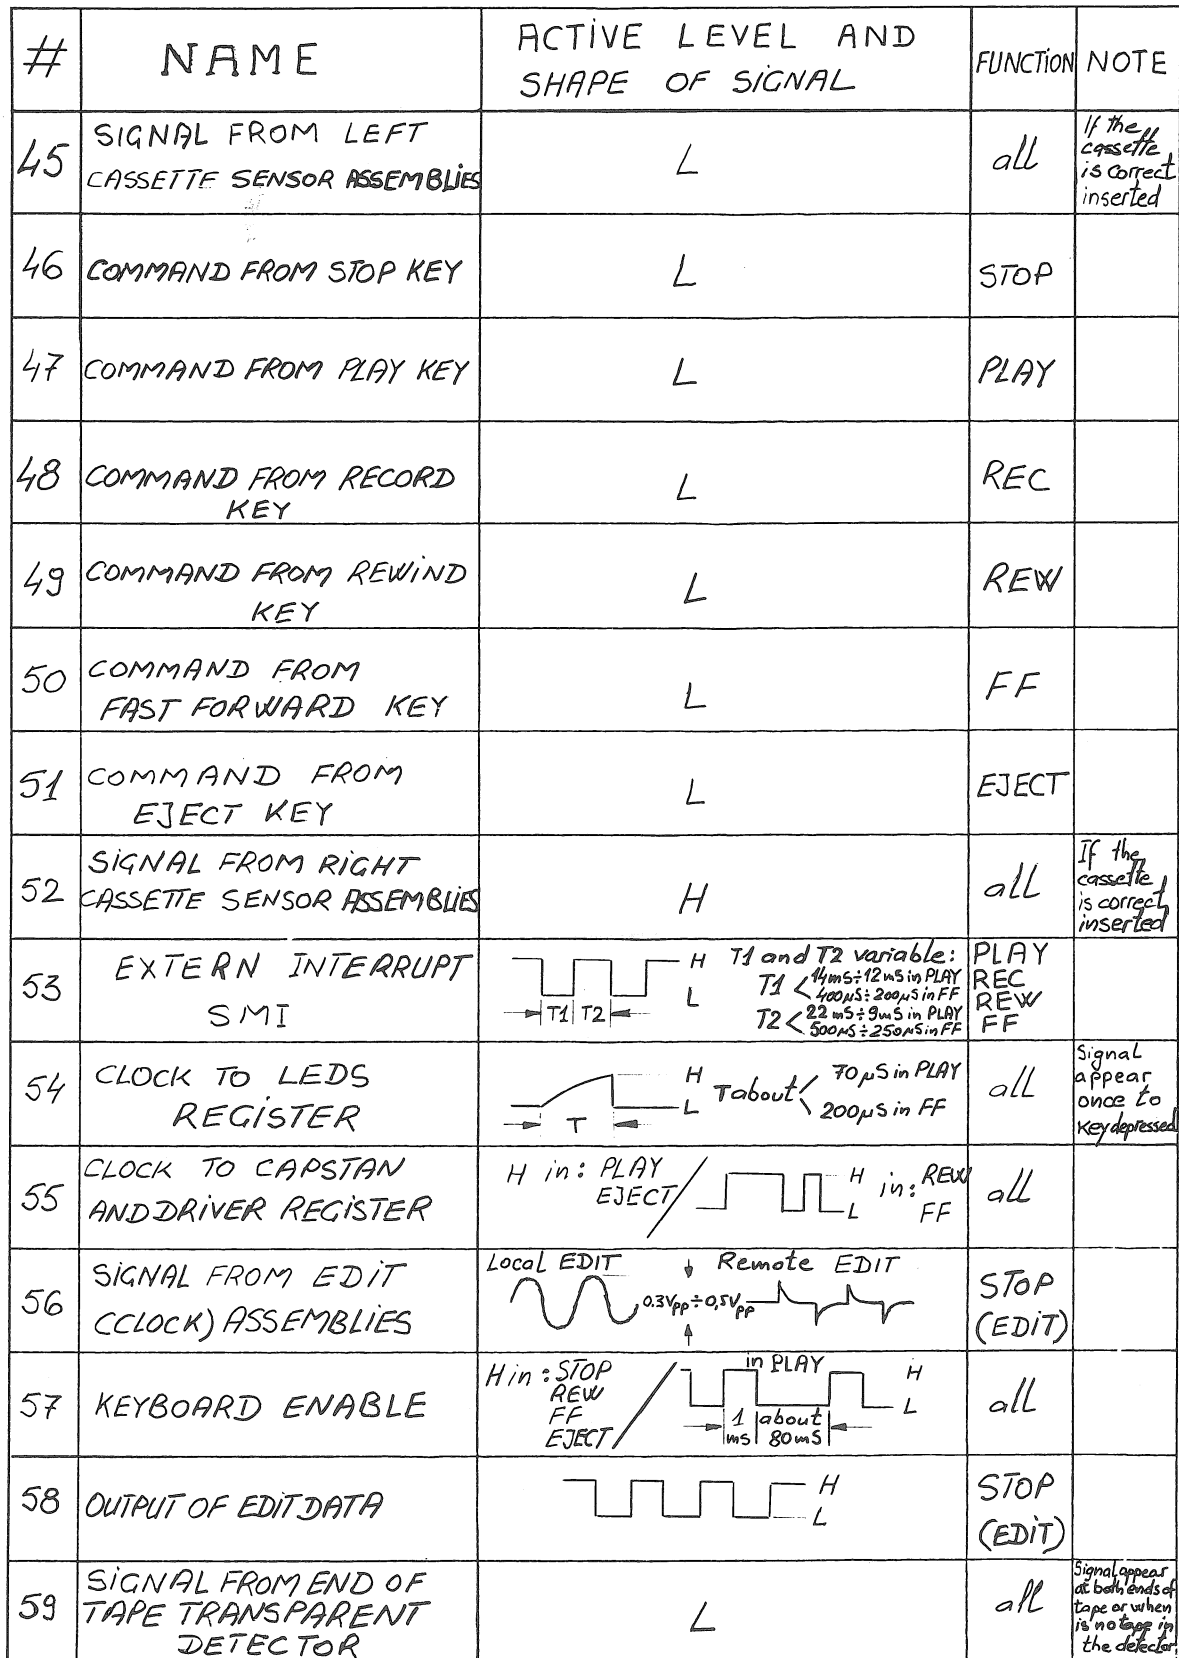 #
NAME
ACTIVE LEVEL AND
SHAPE OF SIGNAL
FUNCTION
NOTE
45
SIGNAL FROM LEFT
CASSETTE SENSOR ASSEMBLIES
L
all
If the
cassette
is correct
inserted
46
COMMAND FROM STOP KEY
L
STOP
47
COMMAND FROM PLAY KEY
L
PLAY
48
COMMAND FROM RECORD
KEY
L
REC
49
COMMAND FROM REWIND
KEY
L
REW
50
COMMAND FROM
FAST FORWARD KEY
L
FF
51
COMMAND FROM
EJECT KEY
L
EJECT
52
SIGNAL FROM RIGHT
CASSETTE SENSOR ASSEMBLIES
H
all
If the
cassette
is correct
inserted
53
EXTERN INTERRUPT
SMI
H
L
T1 T2
T1 and T2 variable:
T1 < 14mS÷12mS in PLAY
400µS÷200µS in FF
T2 < 22mS÷9mS in PLAY
500µS÷250µS in FF
PLAY
REC
REW
FF
54
CLOCK TO LEDS
REGISTER
H
L
T
T about
70µS in PLAY
200µS in FF
all
Signal
appear
once to
key depressed
55
CLOCK TO CAPSTAN
AND DRIVER REGISTER
H in: PLAY
EJECT /
H
L
in: REW
FF
all
56
SIGNAL FROM EDIT
(CLOCK) ASSEMBLIES
Local EDIT
Remote EDIT
0.3Vpp÷0,5Vpp
STOP
(EDIT)
57
KEYBOARD ENABLE
H in: STOP
REW
FF
EJECT /
in PLAY
H
L
1 about
mS 80mS
all
58
OUTPUT OF EDIT DATA
H
L
STOP
(EDIT)
59
SIGNAL FROM END OF
TAPE TRANSPARENT
DETECTOR
L
all
Signal appear
at both ends of
tape or when
is no tape in
the detector